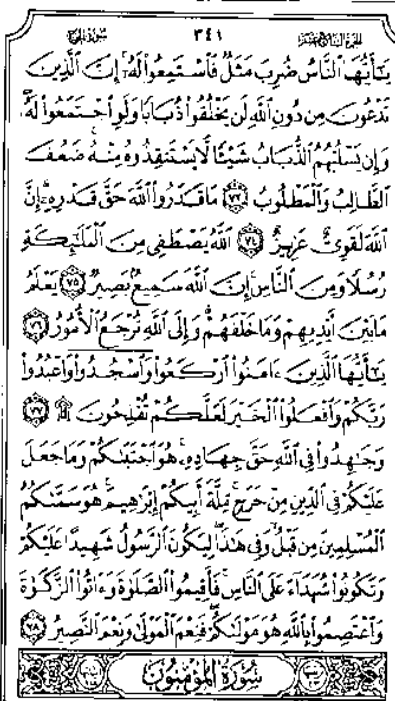 الجزء السابع عشر ٣٤١ سورة الحج
يَـٰٓأَيُّهَا ٱلنَّاسُ ضُرِبَ مَثَلٌ فَٱسْتَمِعُوا۟ لَهُۥٓ إِنَّ ٱلَّذِينَ
تَدْعُونَ مِن دُونِ ٱللَّهِ لَن يَخْلُقُوا۟ ذُبَابًا وَلَوِ ٱجْتَمَعُوا۟ لَهُۥ
وَإِن يَسْلُبْهُمُ ٱلذُّبَابُ شَيْـًٔا لَّا يَسْتَنقِذُوهُ مِنْهُ ضَعُفَ
ٱلطَّالِبُ وَٱلْمَطْلُوبُ ٧٣ مَا قَدَرُوا۟ ٱللَّهَ حَقَّ قَدْرِهِۦٓ إِنَّ
ٱللَّهَ لَقَوِىٌّ عَزِيزٌ ٧٤ ٱللَّهُ يَصْطَفِى مِنَ ٱلْمَلَـٰٓئِكَةِ
رُسُلًا وَمِنَ ٱلنَّاسِ إِنَّ ٱللَّهَ سَمِيعٌۢ بَصِيرٌ ٧٥ يَعْلَمُ
مَا بَيْنَ أَيْدِيهِمْ وَمَا خَلْفَهُمْ وَإِلَى ٱللَّهِ تُرْجَعُ ٱلْأُمُورُ ٧٦
يَـٰٓأَيُّهَا ٱلَّذِينَ ءَامَنُوا۟ ٱرْكَعُوا۟ وَٱسْجُدُوا۟ وَٱعْبُدُوا۟
رَبَّكُمْ وَٱفْعَلُوا۟ ٱلْخَيْرَ لَعَلَّكُمْ تُفْلِحُونَ ۩ ٧٧
وَجَـٰهِدُوا۟ فِى ٱللَّهِ حَقَّ جِهَادِهِۦ هُوَ ٱجْتَبَىٰكُمْ وَمَا جَعَلَ
عَلَيْكُمْ فِى ٱلدِّينِ مِنْ حَرَجٍ مِّلَّةَ أَبِيكُمْ إِبْرَٰهِيمَ هُوَ سَمَّىٰكُمُ
ٱلْمُسْلِمِينَ مِن قَبْلُ وَفِى هَـٰذَا لِيَكُونَ ٱلرَّسُولُ شَهِيدًا عَلَيْكُمْ
وَتَكُونُوا۟ شُهَدَآءَ عَلَى ٱلنَّاسِ فَأَقِيمُوا۟ ٱلصَّلَوٰةَ وَءَاتُوا۟ ٱلزَّكَوٰةَ
وَٱعْتَصِمُوا۟ بِٱللَّهِ هُوَ مَوْلَىٰكُمْ فَنِعْمَ ٱلْمَوْلَىٰ وَنِعْمَ ٱلنَّصِيرُ ٧٨
سُورَةُ ٱلْمُؤْمِنُونَ